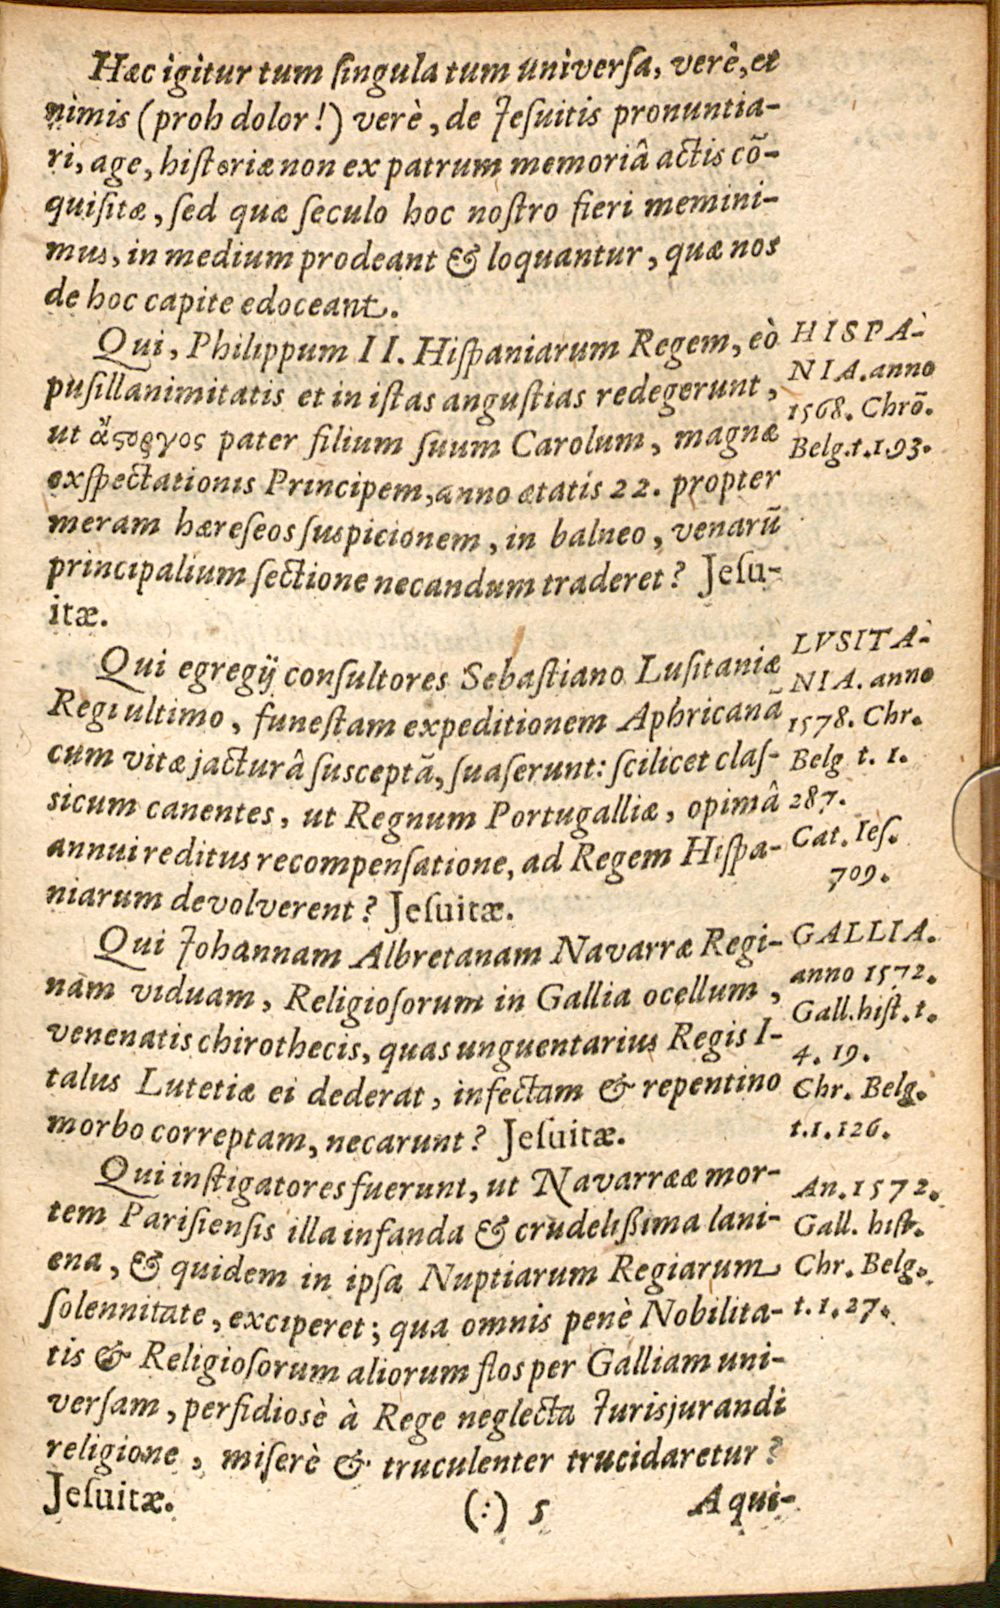 Hæc igitur tum ſingula tum univerſa, verè, et
nimis (proh dolor!) verè, de Jeſuitis pronuntia-
ri, age, hiſtoriæ non ex patrum memoriâ actis cō-
quiſitæ, ſed quæ ſeculo hoc noſtro fieri memini-
mus, in medium prodeant & loquantur, quæ nos
de hoc capite edoceant.
Qui, Philippum II. Hiſpaniarum Regem, eò
puſillanimitatis et in iſtas anguſtias redegerunt,
ut ἄςοργος pater filium ſuum Carolum, magnæ
exſpectationis Principem, anno ætatis 22. propter
meram hæreſeos ſuspicionem, in balneo, venarū
principalium ſectione necandum traderet? Jeſu-
itæ.
HISPA-
NIA. anno
1568. Chrō.
Belg. t. 1. 93.
Qui egregij conſultores Sebaſtiano Luſitaniæ
Regi ultimo, funeſtam expeditionem Aphricanā
cum vitæ jacturâ ſusceptā, ſuaſerunt: ſcilicet claſ-
ſicum canentes, ut Regnum Portugalliæ, opimâ
annui reditus recompenſatione, ad Regem Hiſpa-
niarum devolverent? Jeſuitæ.
LVSITA-
NIA. anno
1578. Chr.
Belg t. 1.
287.
Cat. Ieſ.
709.
Qui Johannam Albretanam Navarræ Regi-
nam viduam, Religioſorum in Gallia ocellum,
venenatis chirothecis, quas unguentarius Regis I-
talus Lutetiæ ei dederat, infectam & repentino
morbo correptam, necarunt? Jeſuitæ.
GALLIA.
anno 1572.
Gall. hiſt. t.
4. 19.
Chr. Belg.
t. 1. 126.
Qui inſtigatores fuerunt, ut Navarrææ mor-
tem Pariſienſis illa infanda & crudelißima lani-
ena, & quidem in ipſa Nuptiarum Regiarum
ſolennitate, exciperet; qua omnis penè Nobilita-
tis & Religioſorum aliorum flos per Galliam uni-
verſam, perfidiosè à Rege neglecta Jurisjurandi
religione, miſerè & truculenter trucidaretur?
Jeſuitæ.
An. 1572.
Gall. hiſt.
Chr. Belg.
t. 1. 27.
(:) 5
A qui-